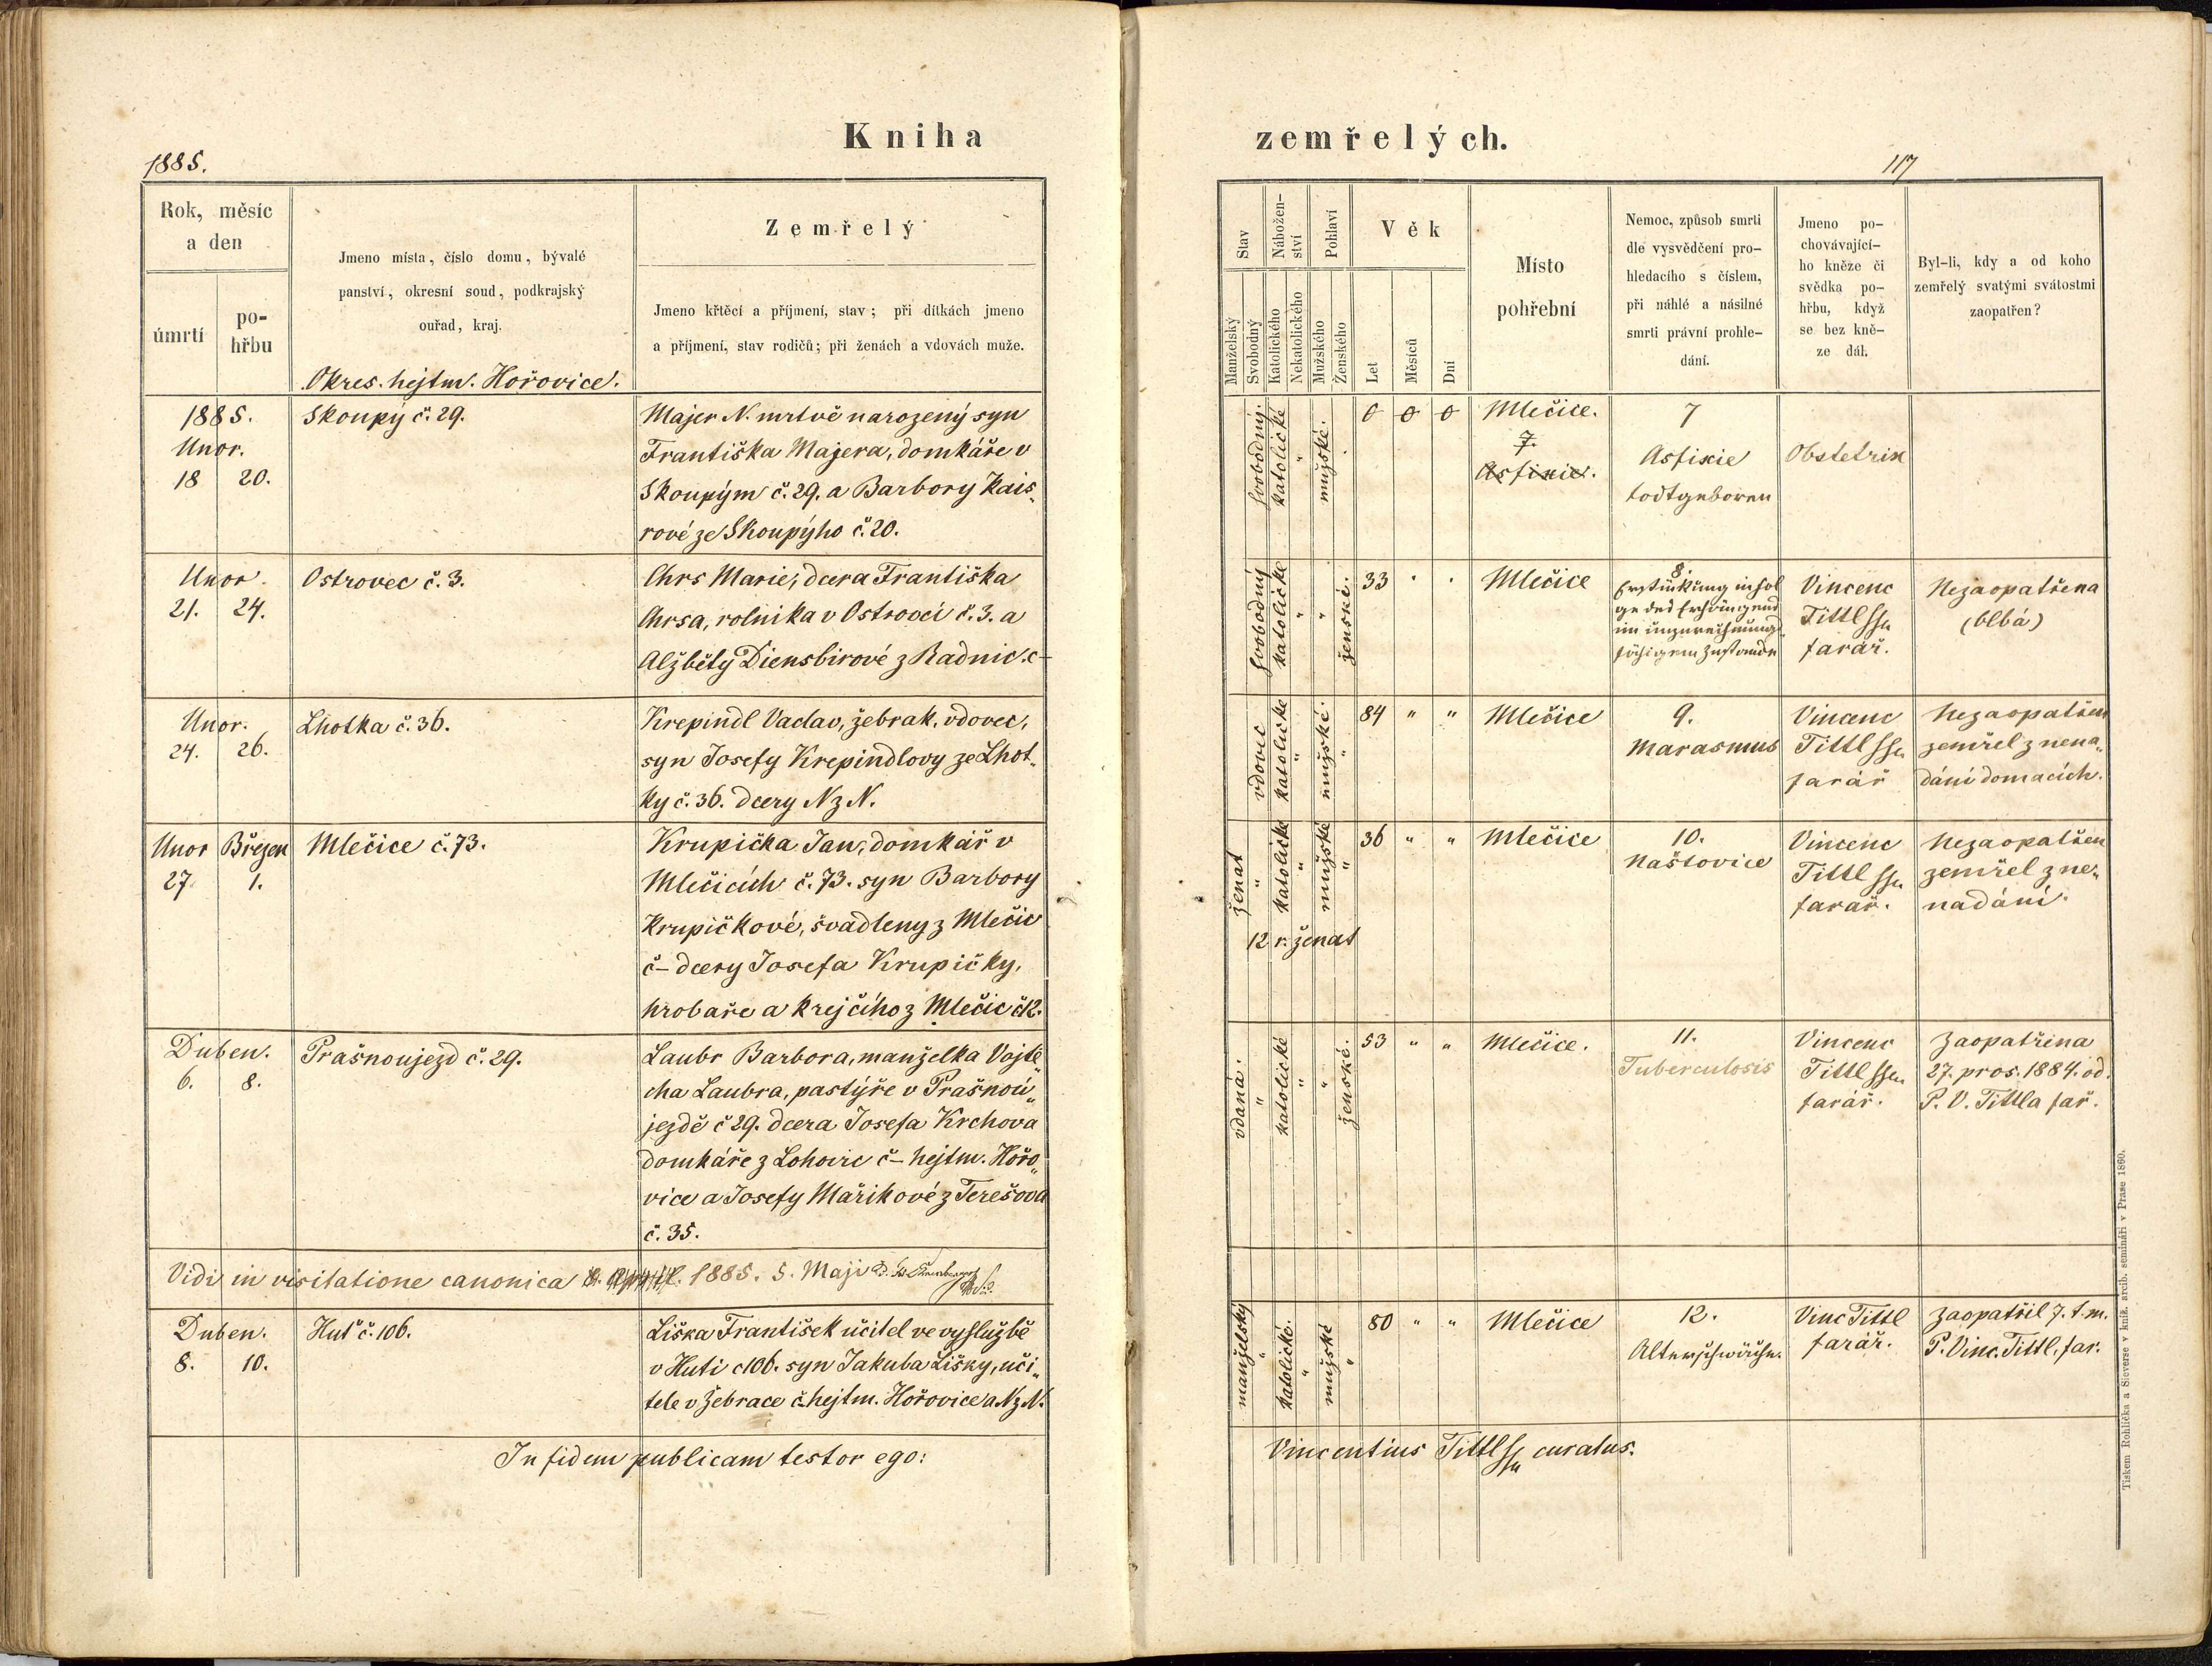 Kniha
zemřelých.
1885.
117
Rok, měsíc
a den
úmrtí
po-
hřbu
Jmeno místa, číslo domu, bývalé
panství, okresní soud, podkrajský
ouřad, kraj.
Okres. hejtm. Hořovice.
Zemřelý
Jmeno křtěcí a příjmení, stav; při dítkách jmeno
a příjmení, stav rodičů; při ženách a vdovách muže.
Stav
Manželský
Svobodný
Nábožen-
ství
Katolického
Nekatolického
Pohlaví
Mužského
Ženského
Věk
Let
Měsíců
Dní
Místo
pohřební
Nemoc, způsob smrti
dle vysvědčení pro-
hledacího s číslem,
při náhlé a násilné
smrti právní prohle-
dání.
Jmeno po-
chovávající-
ho kněze či
svědka po-
hřbu, když
se bez kně-
ze dál.
Byl-li, kdy a od koho
zemřelý svatými svátostmi
zaopatřen?
1885.
Unor.
18 20.
Skoupý č. 29.
Majer N. mrtvě narozený syn
Františka Majera, domkáře v
Skoupým č. 29. a Barbory Kais„
rové ze Skoupýho č. 20.
svobodný.
katolické
"
mužské.
0 0 0
Mlečice.
7.
Asfixie.
7
Asfixie
todtgeboren
Obstetrix
Unor.
21. 24.
Ostrovec č. 3.
Chrs Marie, dcera Františka
Chrsa, rolníka v Ostrovci č. 3. a
Alžběty Diensbirové z Radnic. č–
svobodný
katolické
"
"
ženské.
33 " "
Mlečice
8.
Erstickung infol
ge des Erhängens
im unzurechnungs
fähigem Zustande
Vincenc
Tittl
farář.
Nezaopatřena
(blbá)
Unor.
24. 26.
Lhotka č. 36.
Krepindl Vaclav, žebrak, vdovec,
syn Josefy Krepindlovy ze Lhot„
ky č. 36. dcery N z N.
vdovec
katolické
"
mužské.
"
84 " "
Mlečice
9.
Marasmus
Vincenc
Tittl
farář
Nezaopatřen
zemřel z nena„
dání domacích.
Unor Březen
27. 1.
Mlečice č. 73.
Krupička Jan, domkář v
Mlečicích č. 73. syn Barbory
Krupičkové, švadleny z Mlečic
č– dcery Josefa Krupičky,
hrobaře a krejčího z Mlečic č 12.
ženat
"
katolické
"
mužské
"
12 r. ženat
36 " "
Mlečice
10.
Naštovice
Vincenc
Tittl
farář.
Nezaopatřen
zemřel z ne„
nadání.
Duben.
6. 8.
Prašnoujezd č. 29.
Laubr Barbora, manželka Vojtě„
cha Laubra, pastýře v Prašnoú„
jezdě č 29. dcera Josefa Krchova
domkáře z Lohovic č– hejtm. Hořo„
vice a Josefy Mařikové z Terešova
č. 35.
vdaná.
"
katolické
"
"
ženské.
53 " "
Mlečice.
11.
Tuberculosis
Vincenc
Tittl
farář.
Zaopatřina
27. pros. 1884. od.
P. V. Tittla far.
Vidi in visitatione canonica 1885. 5. Maji
Duben.
8. 10.
Huť č. 106.
Liška František učitel ve vyslužbě
v Huti č 106. syn Jakuba Lišky, uči„
tele v Žebrace č– hejtm. Hořovice a N z N.
manželský
"
katolické.
"
mužské
"
80 " "
Mlečice
12.
Altersschwäche.
Vinc Tittl
farář.
Zaopatřil 7. t. m.
P. Vinc. Tittl, far.
In fidem publicam testor ego:
Vincentius Tittl curatus.
Tiskem Rohlíčka a Sieverse v kníž. arcib. semináři v Praze 1860.